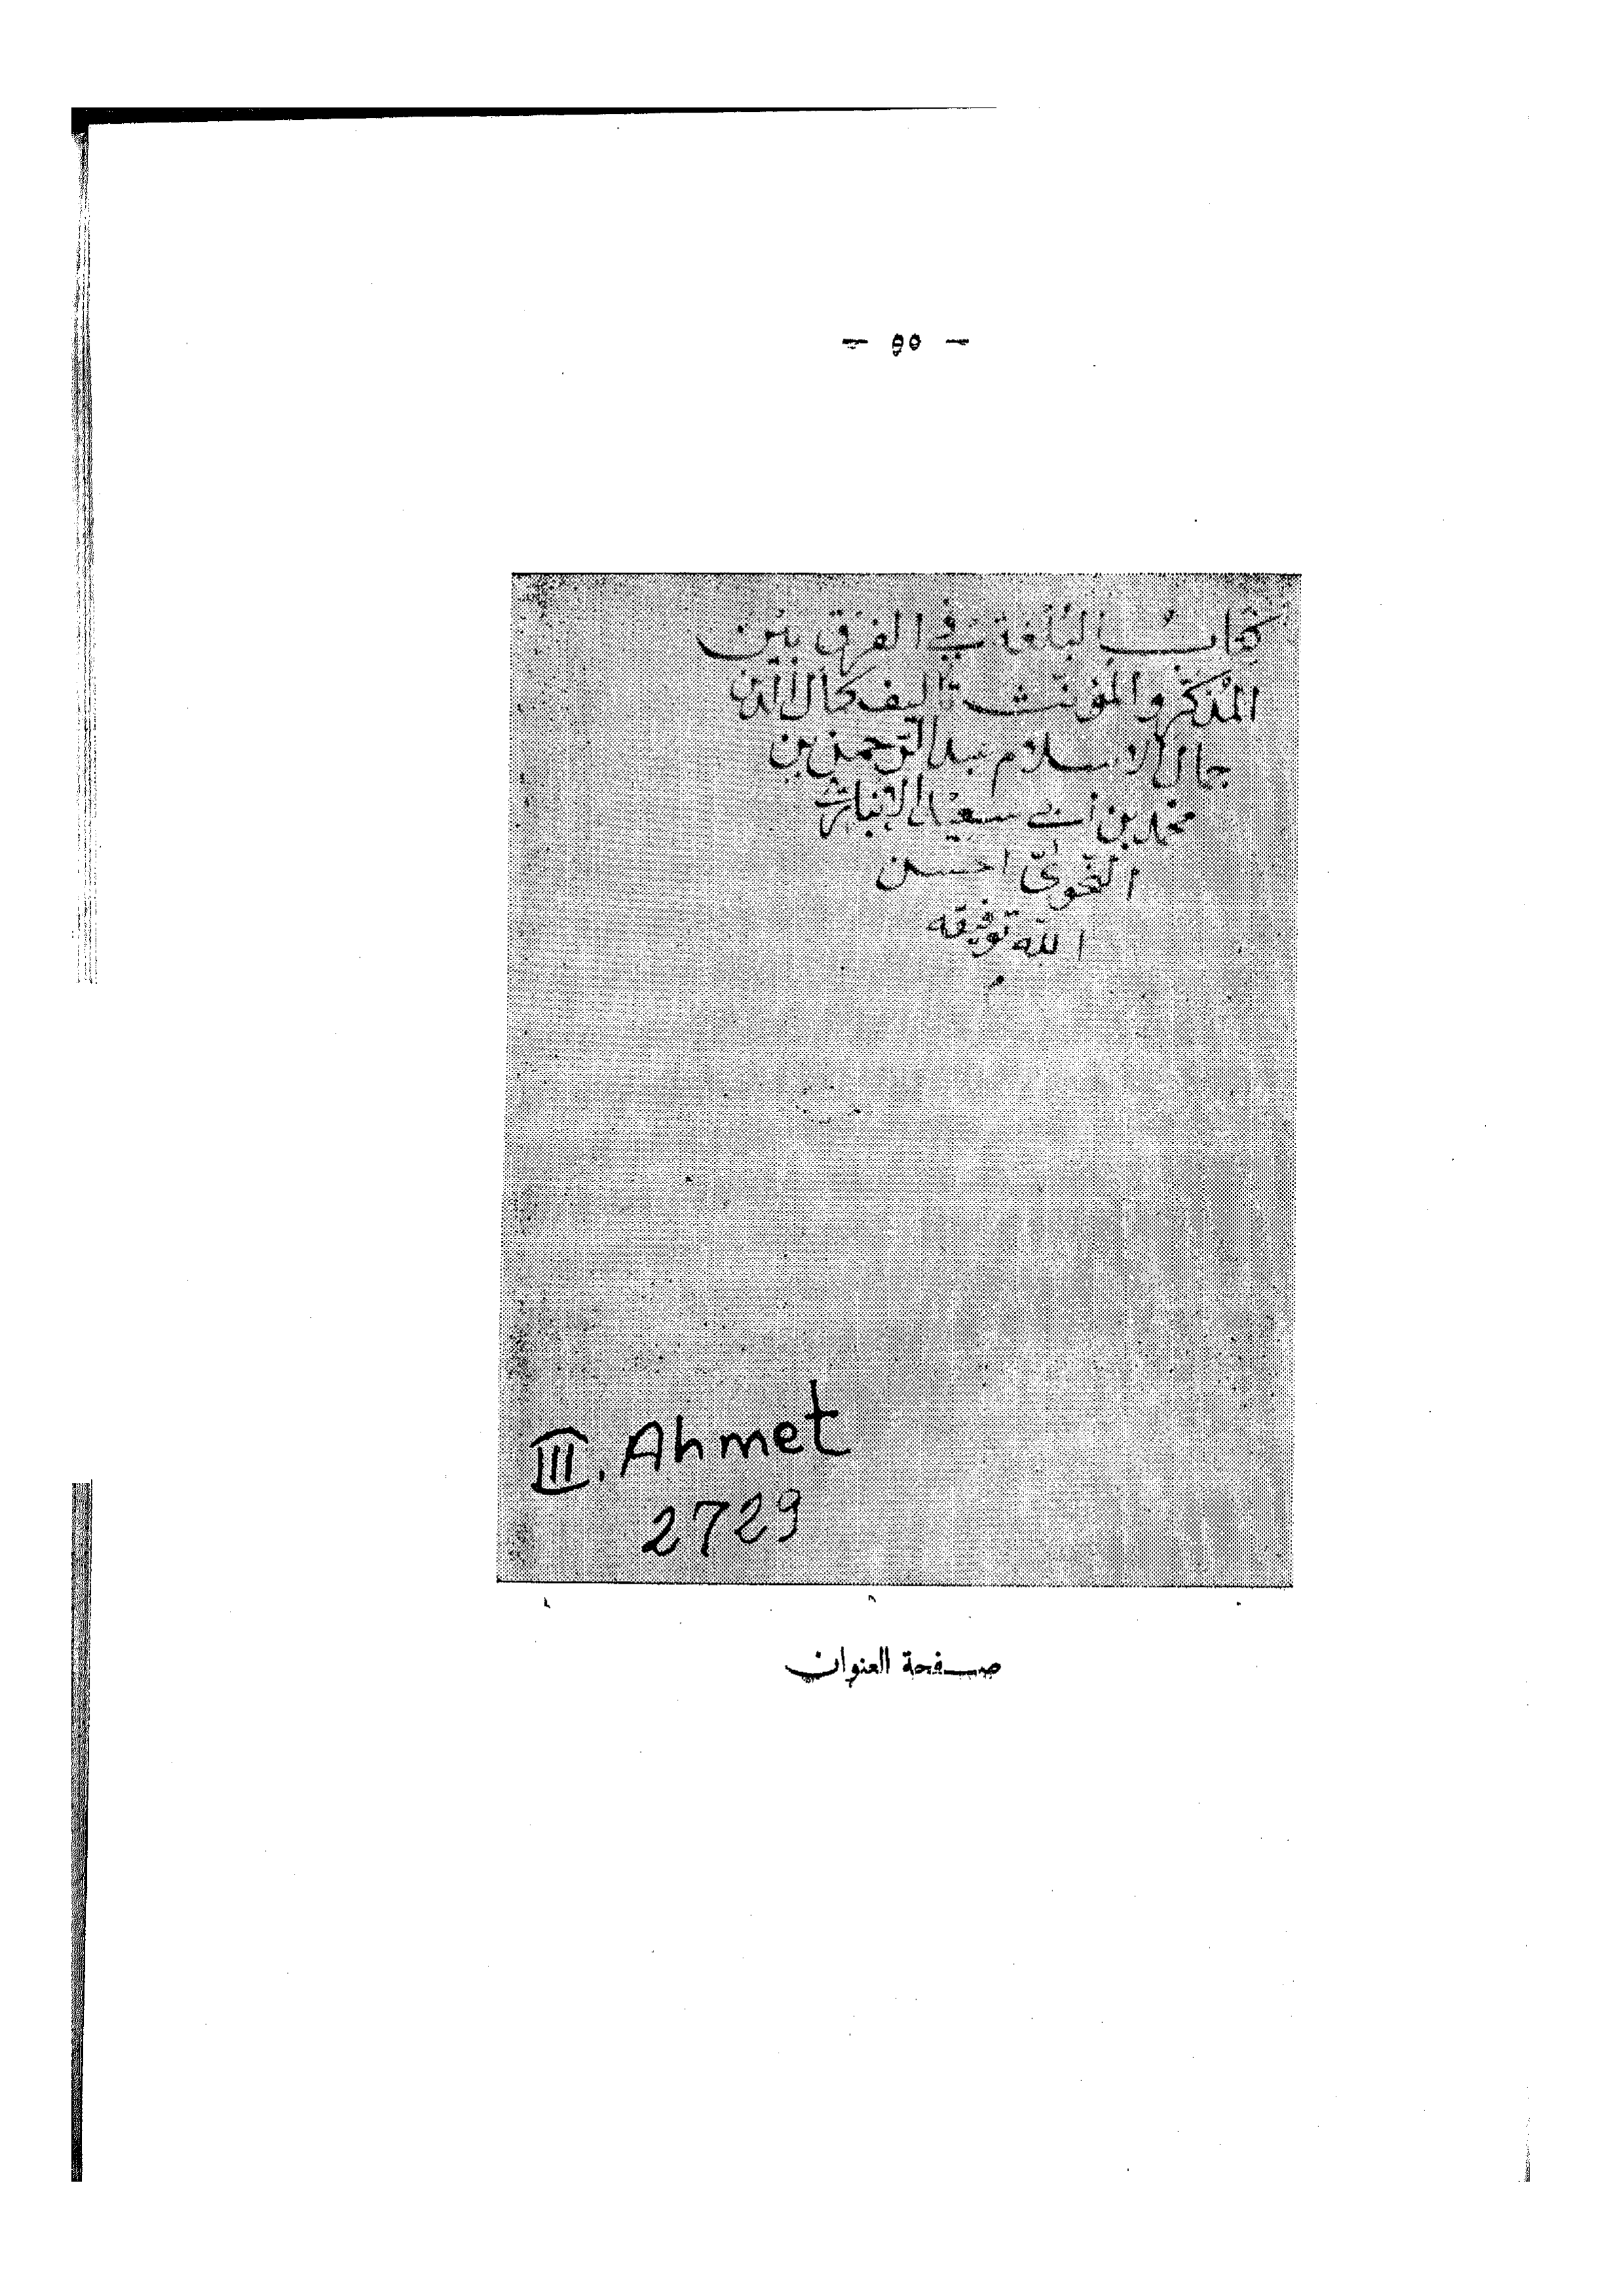 — ٥٥ —
كتاب البُلغة في الفرق بين
المذكّر والمؤنّث تاليف كمال الدين
جمال الاسلام عبد الرّحمن بن
محمد بن أبي سعيد الانباريّ
النّحويّ احسن
الله توفيقه
III. Ahmet
2729
صفحة العنوان